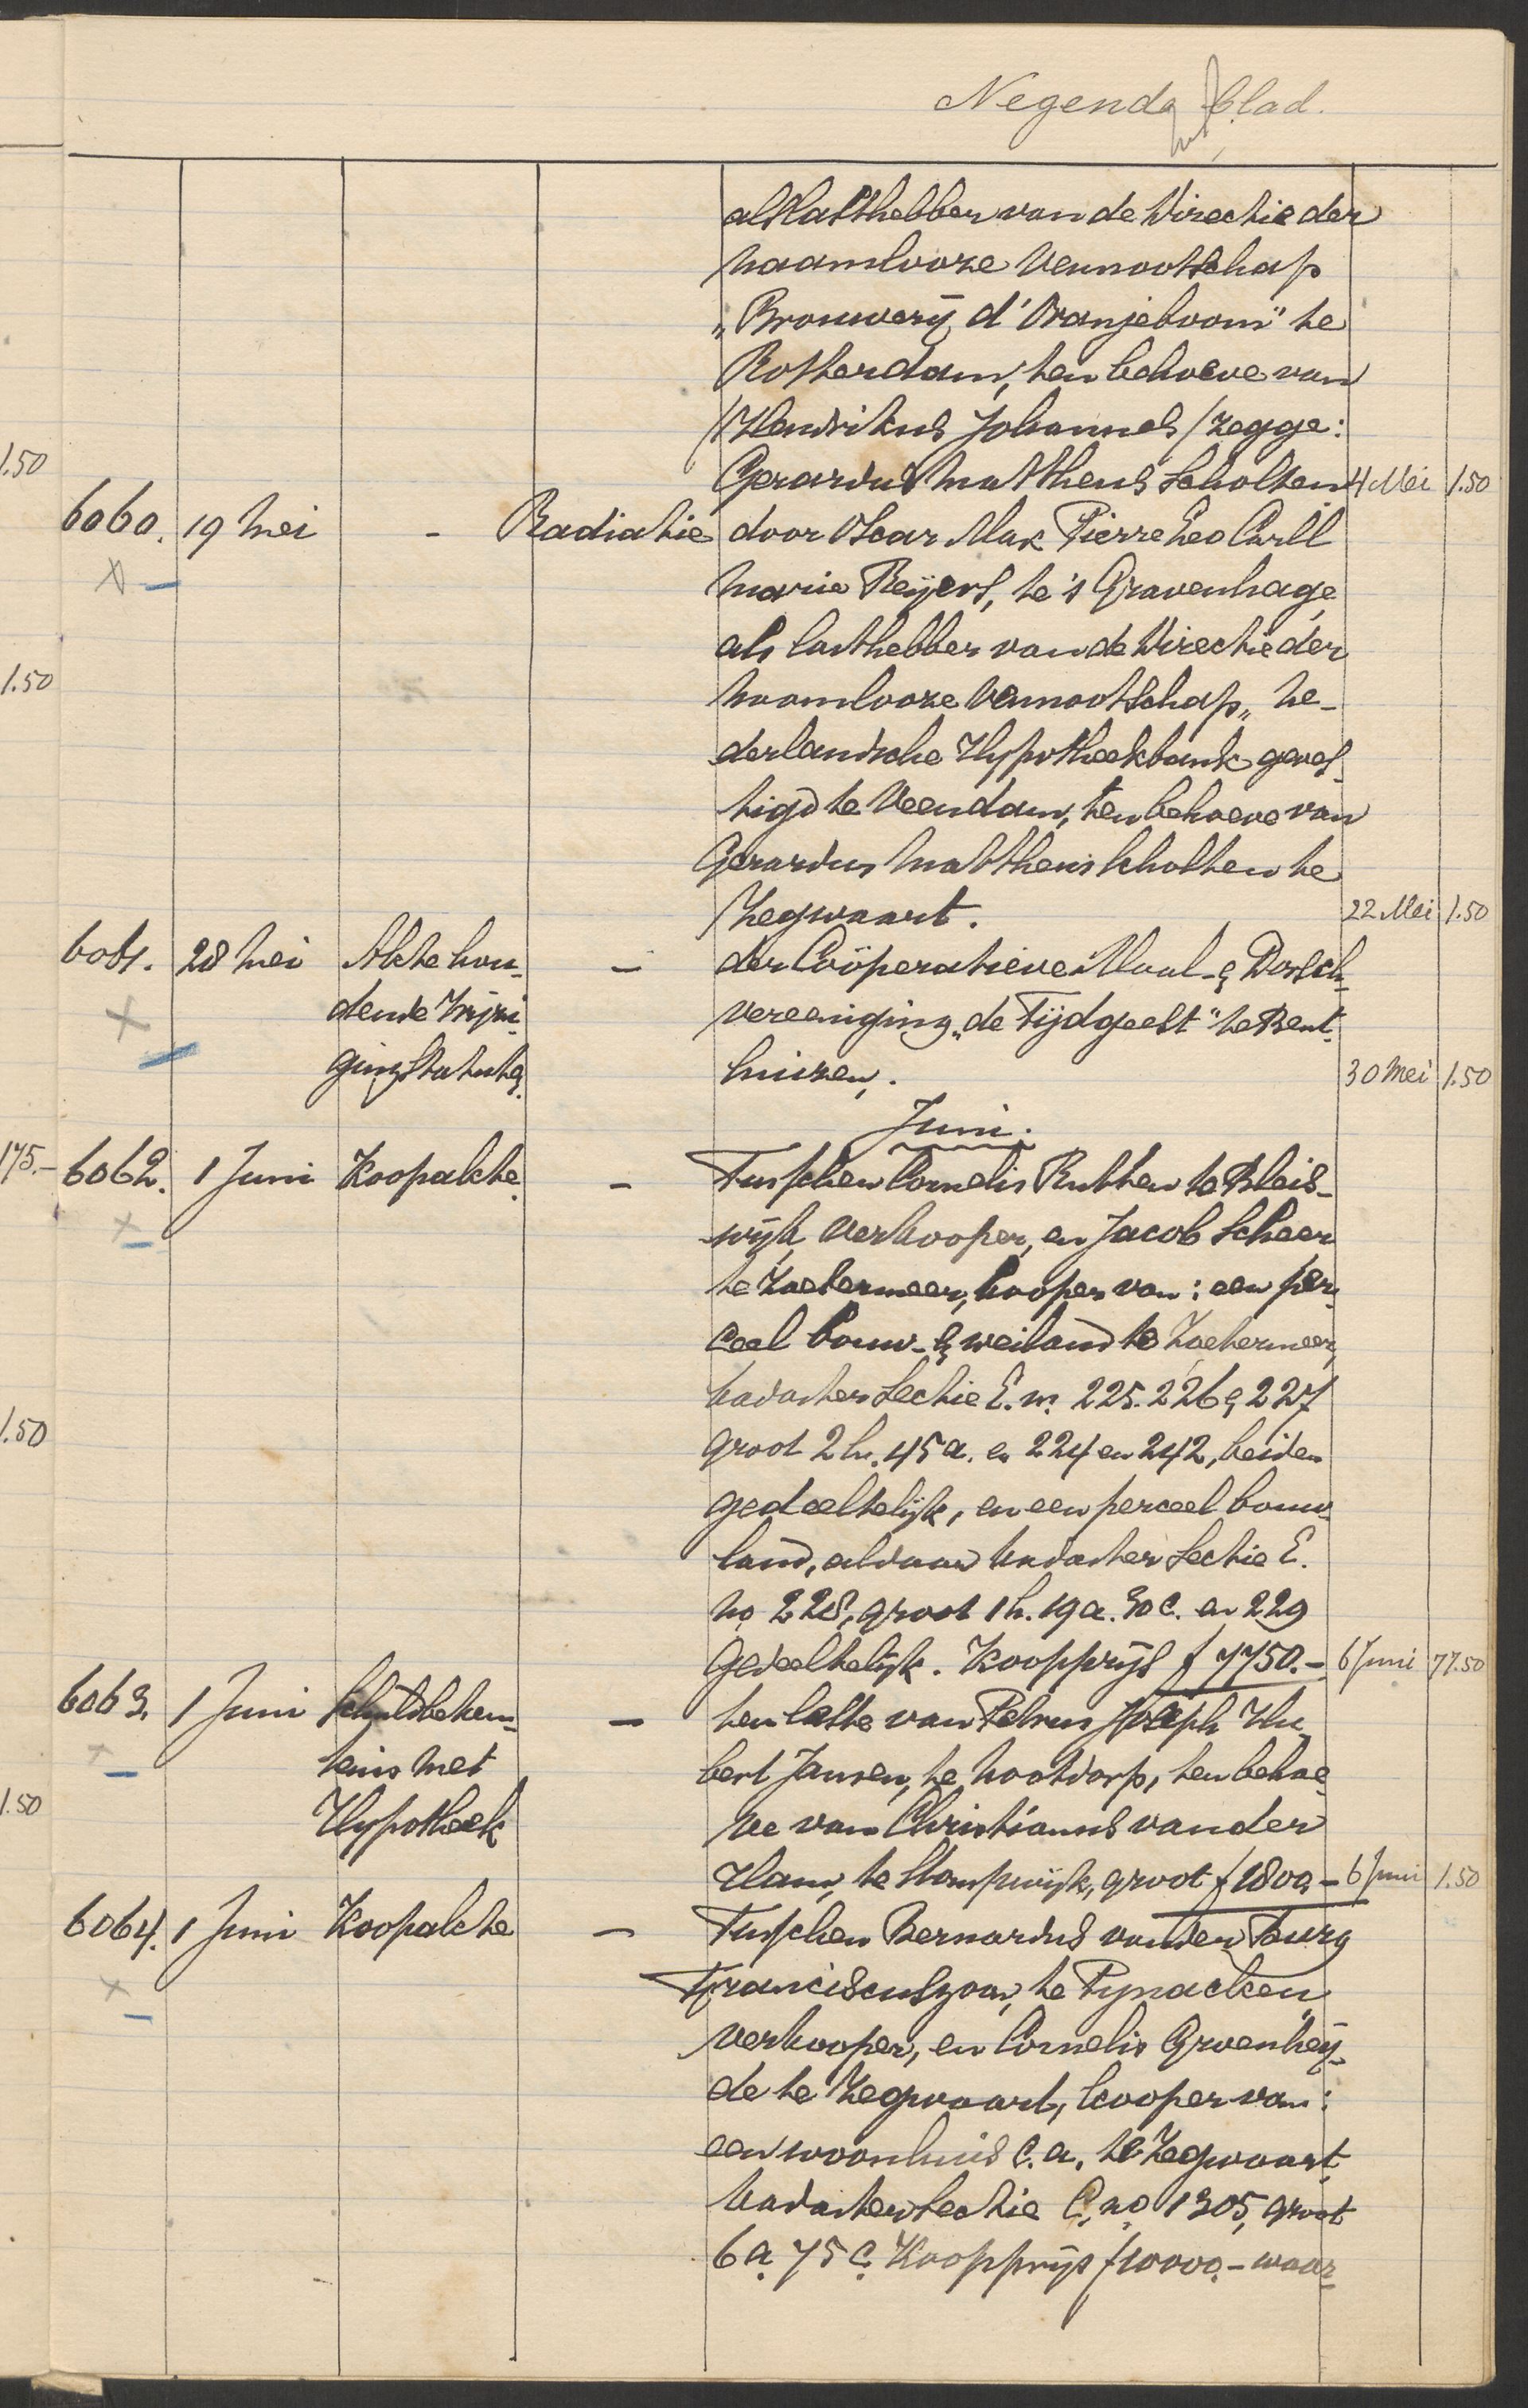 Negende blad.
als lasthebber van de Directie der
Naamlooze Vennootschap
„Brouwerij d'Oranjeboom" te
Rotterdam, ten behoeve van
Hendrikus Johannes / zegge:
1.50
Gerardus Mattheus Scholten 4 Mei 1.50
6060. 19 Mei - Radiatie door Oscar Max Pierre Leo Carll
Marie Reijers, te 's Gravenhage
als lasthebber van de Directie der
1.50
Naamlooze Vennootschap „Ne-
derlandsche Hypotheekbank geves-
tigd te Veendam, ten behoeve van
Gerardus Mattheus Scholten te
Zegwaart. 22 Mei 1.50
6061. 28 Mei Akte hou- - der Coöperatieve Maal- & Dorsch-
dende Wijzi- vereeniging „de Tijdgeest" te Bent-
ging Statuten huizen. 30 Mei 1.50
Juni.
175.- 6062. 1 Juni Koopakte - Tusschen Cornelis Rutten te Bleis-
wijk verkooper, en Jacob Scheer
te Zoetermeer, kooper van: een per-
ceel bouw- & weiland te Zoetermeer,
kadaster Sectie E. nr. 225. 226 & 227
1.50
groot 2 h. 45 a. en 224 en 242, beiden
gedeeltelijk, en een perceel bouw-
land, aldaar kadaster Sectie E.
no 228, groot 1 h. 19 a. 30 c. en 229
gedeeltelijk. Koopprijs f 7750.- 6 Juni 77.50
6063. 1 Juni Schuldbeken- - ten laste van Petrus Joseph Hu-
tenis met bert Jansen, te Nootdorp, ten behoe-
1.50
Hypotheek ve van Christianus van der
Ham, te Stompwijk, groot f 1800,- 6 Juni 1.50
6064. 1 Juni Koopakte - Tusschen Bernardus van den Burg
Franciscuszoon, te Pijnacken,
verkooper, en Cornelis Groenhey-
de te Zegwaart, kooper van:
een woonhuis c.a. te Zegwaart,
kadaster Sectie C, no 1305, groot
6 a. 75 c. Koopprijs f 10000,- waar-